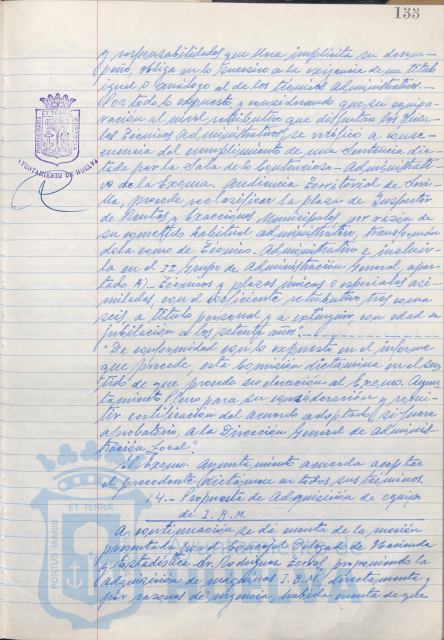 133
y responsabilidades que lleva implícita su desem-
peño, obliga en lo sucesivo a la exigencia de un título
igual o análogo al de los técnicos administrativos.-
Por todo lo expuesto, y considerando que su equipa-
ración al nivel retributivo que disfrutan los
los Técnicos Administrativos, se verificó a conse-
cuencia del cumplimiento de una Sentencia dic-
tada por la Sala de lo Contencioso-Administrati-
vo de la Excma. Audiencia Territorial de Sevi-
lla, procede reclasificar la plaza de Inspector
de Rentas y Exacciones Municipales por razón de
su cometido habitual administrativo, transformán-
dola como de Técnico-Administrativo e incluir-
la en el II Grupo de Administración General, apar-
tado A).- Técnicos y plazas únicas o especiales asi-
miladas, con el coeficiente retributivo tres coma
seis, a título personal y a extinguir, con edad de
jubilación a los setenta años".
"De conformidad con lo expuesto en el informe
que precede, esta Comisión dictamina en el sen-
tido de que procede su elevación al Excmo. Ayun-
tamiento Pleno para su consideración y remi-
tir certificación del acuerdo adoptado, si fuera
aprobatorio, a la Dirección General de Adminis-
tración Local".
El Excmo. Ayuntamiento acuerda aceptar
el precedente dictamen en todos sus términos.
14.- Propuesta de Adquisición de equipo
de I.B.M.
A continuación se dió cuenta de la moción
presentada por el Concejal Delegado de Hacienda
y Estadística Sr. Rodríguez proponiendo la
adquisición de máquinas I.B.M. directamente y
por razones de urgencia habida cuenta de que
AYUNTAMIENTO DE HUELVA
PORTUS MARIS ET TERRAE
PORTUS MARIS ET TERRAE